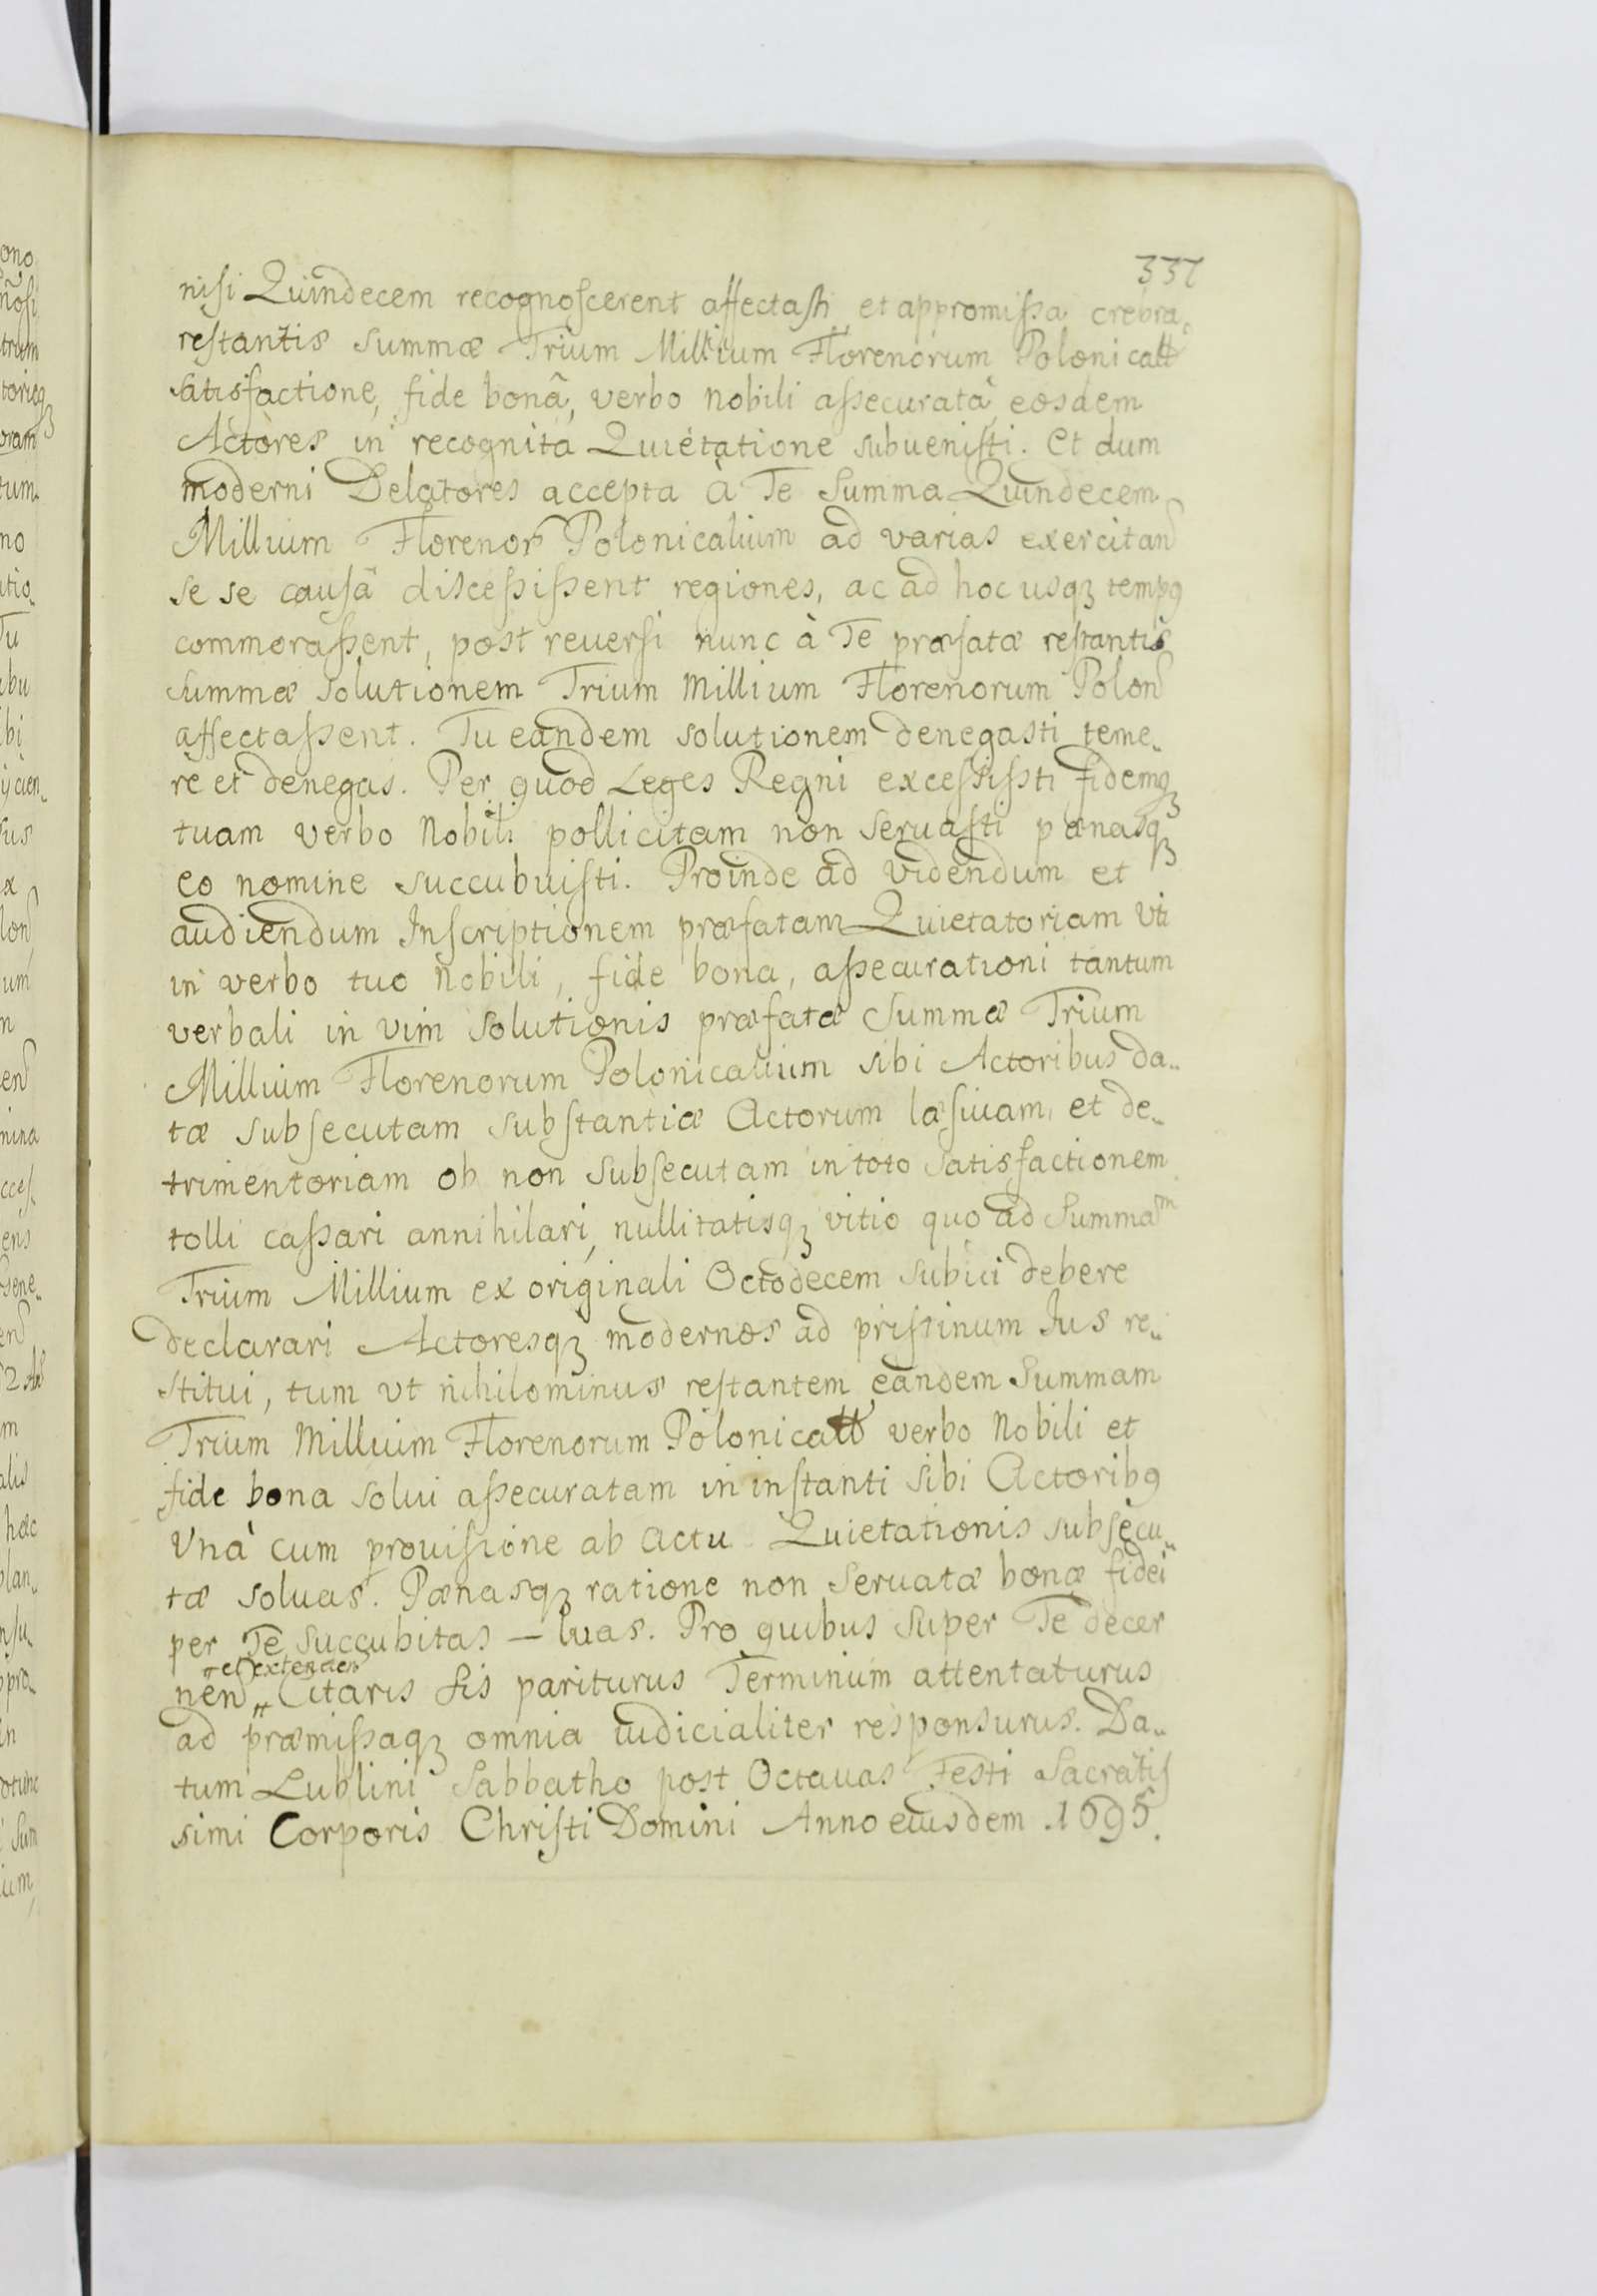 337
nisi Quindecem recognoscerent affectasti et appromissa crebra,
restantis summæ Trium Millium Florenorum Polonicall
satisfactione, fide bonâ, verbo nobili assecuratâ eosdem
Actores in recognitâ Quietatione subuenisti. Et dum
moderni Delatores accepta à Te Summa Quindecem
Millium Florenor Polonicalium ad varias exercitan
se se causâ discessissent regiones, ac ad hoc usqꝫ tempꝰ
commorassent, post reuersi nunc à Te præfatæ restantis
summæ solutionem Trium Millium Florenorum Polon
affectassent. Tu eandem solutionem denegasti teme„
re et denegas. Per quod Leges Regni excessissti fidemqꝫ
tuam verbo Nobili pollicitam non seruasti pænasqꝫ
eo nomine succubuisti. Proinde ad videndum et
audiendum Inscriptionem præfatam Quietatoriam vti
in verbo tuo nobili, fide bona, assecurationi tantum
verbali in vim solutionis præfatæ Summæ Trium
Millium Florenorum Polonicalium sibi Actoribus da„
tæ subsecutam substantiæ Actorum læsiuam, et de„
trimentoriam ob non subsecutam in toto satisfactionem
tolli cassari annihilari, nullitatisqꝫ vitio quo ad Summaᵐ
Trium Millium ex originali Octodecem subici debere
declarari Actoresqꝫ modernos ad pristinum Jus re„
stitui, tum vt nihilominus restantem eandem Summam
Trium Millium Florenorum Polonicall verbo Nobili et
fide bona solui assecuratam in instanti sibi Actoribꝰ
Vnà cum prouisione ab actu Quietationis subsecu„
tæ soluas. Pænasqꝫ ratione non seruatæ bonæ fidei
per Te succubitas — luas. Pro quibus super Te decer
et extenden
nen„ Citaris sis pariturus Terminum attentaturus
ad præmissaqꝫ omnia iudicialiter responsurus. Da„
tum Lublini Sabbatho post Octauas Festi Sacratis
simi Corporis Christi Domini Anno eiusdem .1695.